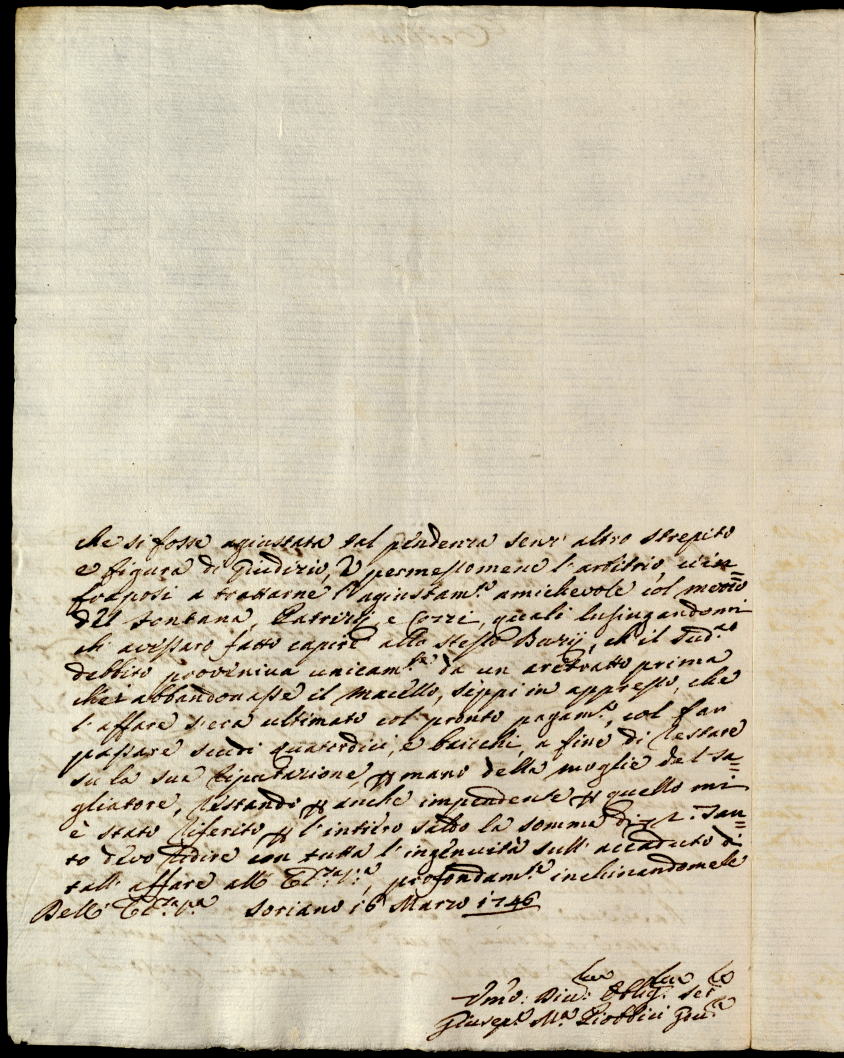 che si fosse agiustata tal pendenza senz' altro strepito
e figura di Giudizio, e permessomene l'arbitrio, vi in=
terposi a trattarne l'agiustam.to amichevole col mezzo
del Fontana, Patrizij, e Cozzi, quali lusingandomi
ch' avessaro fatto capire allo stesso Buzij, ch' il sud.to
debbito proveniva unicam.te da un aretrato prima
che abbandonasse il Macello, seppi in appresso, che
l'affare s'era ultimato col pronto pagam.to, col far
passare scudi quatordici, e baiocchi, a fine di restare
su la sua riputazione, per mano della moglie del Ta=
gliatore, restando per anche impendente per quello mi
è stato riferito per l'intiero saldo la somma di 12: Tan=
to devo ridire con tutta l'ingenuità sull' accaduto di
tall' affare all' Ecc.za V.ra, profondam.te inchinandomele
Dell' Ecc.za V.ra Soriano 16 Marzo 1746
Um.o: Div.mo Oblig.mo Ser.re
Giusep.e M.a Gov.re